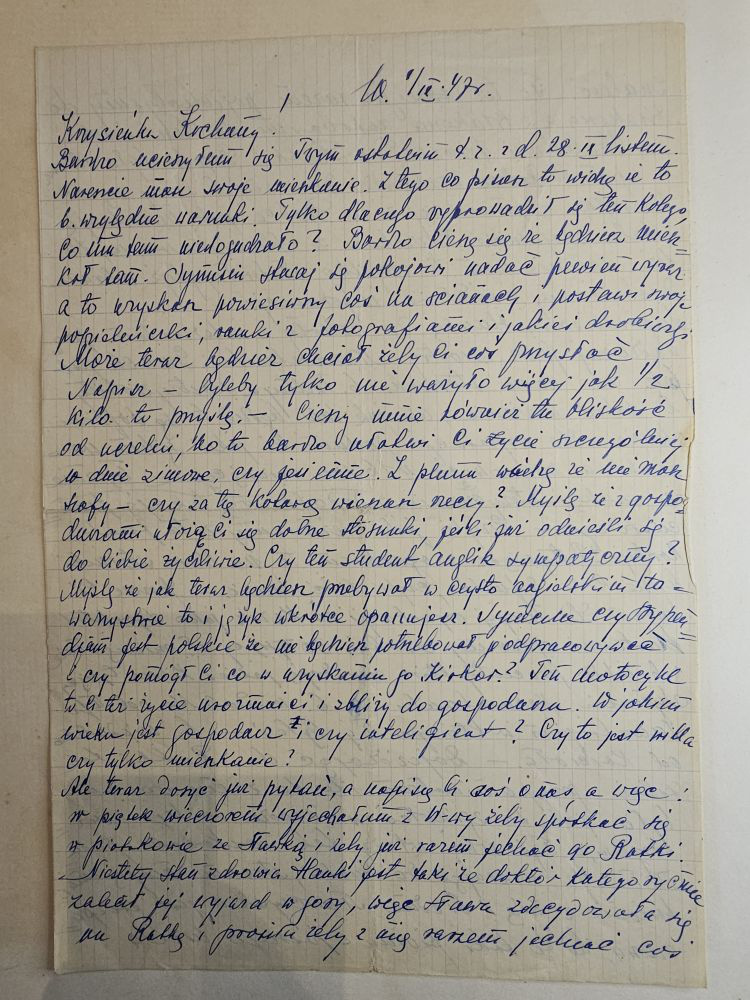 W. 1/IX.47r.
Krzysieńku Kochany.
Bardzo ucieszyłem się Twym ostatnim t. z. z d. 28.IX listem.
Nareszcie masz swoje mieszkanie. Z tego co piszesz to widzę że to
b. względne warunki. Tylko dlaczego wyprowadził się ten kolega,
co mu tam niedogadzało? Bardzo cieszę się że będziesz miesz-
kał sam. Synusiu staraj się pokojowi nadać pewien wyraz
a to uzyskasz powiesiwszy coś na ścianach i postawi swoje
popielniczki, ramki z fotografiami i jakieś drobiazgi
Może teraz będziesz chciał żeby Ci coś przysłać
Napisz – byleby tylko nie ważyło więcej jak 1/2
kilo to przyślę. – Cieszy mnie również ta bliskość
od uczelni, bo to bardzo ułatwi Ci życie szczególniej
w dnie zimowe, czy jesienne. Z planu widzę że nie masz
szafy – czy za tą kotarą wieszasz rzeczy? Myślę że z gospo-
darzami ułożą Ci się dobre stosunki, jeśli już odnieśli się
do Ciebie życzliwie. Czy ten student anglik sympatyczny?
Myślę że jak teraz będziesz przebywał w czysto angielskim to=
warzystwie to i język wkrótce opanujesz. Synecku czy stypen-
djum jest polskie że nie będziesz potrzebował go odpracowywać
i czy pomógł Ci co w uzyskaniu go Kirkor? Ten motocykl
to Ci też życie urozmaici i zbliży do gospodarza. W jakim
wieku jest gospodarz i czy inteligient? Czy to jest willa
czy tylko mieszkanie?
Ale teraz dosyć już pytań, a napiszę Ci coś o nas a więc:
w piątek wieczorem wyjechałam z W-wy żeby spotkać się
w Piotrkowie ze Stawką i żeby już razem jechać do Rabki.
– Niestety stan zdrowia Hanki jest taki że doktór kategorycznie
zalecał jej wyjazd w góry, więc Stawa zdecydowała się
na Rabkę i prosiła żeby z nią razem jechać coś